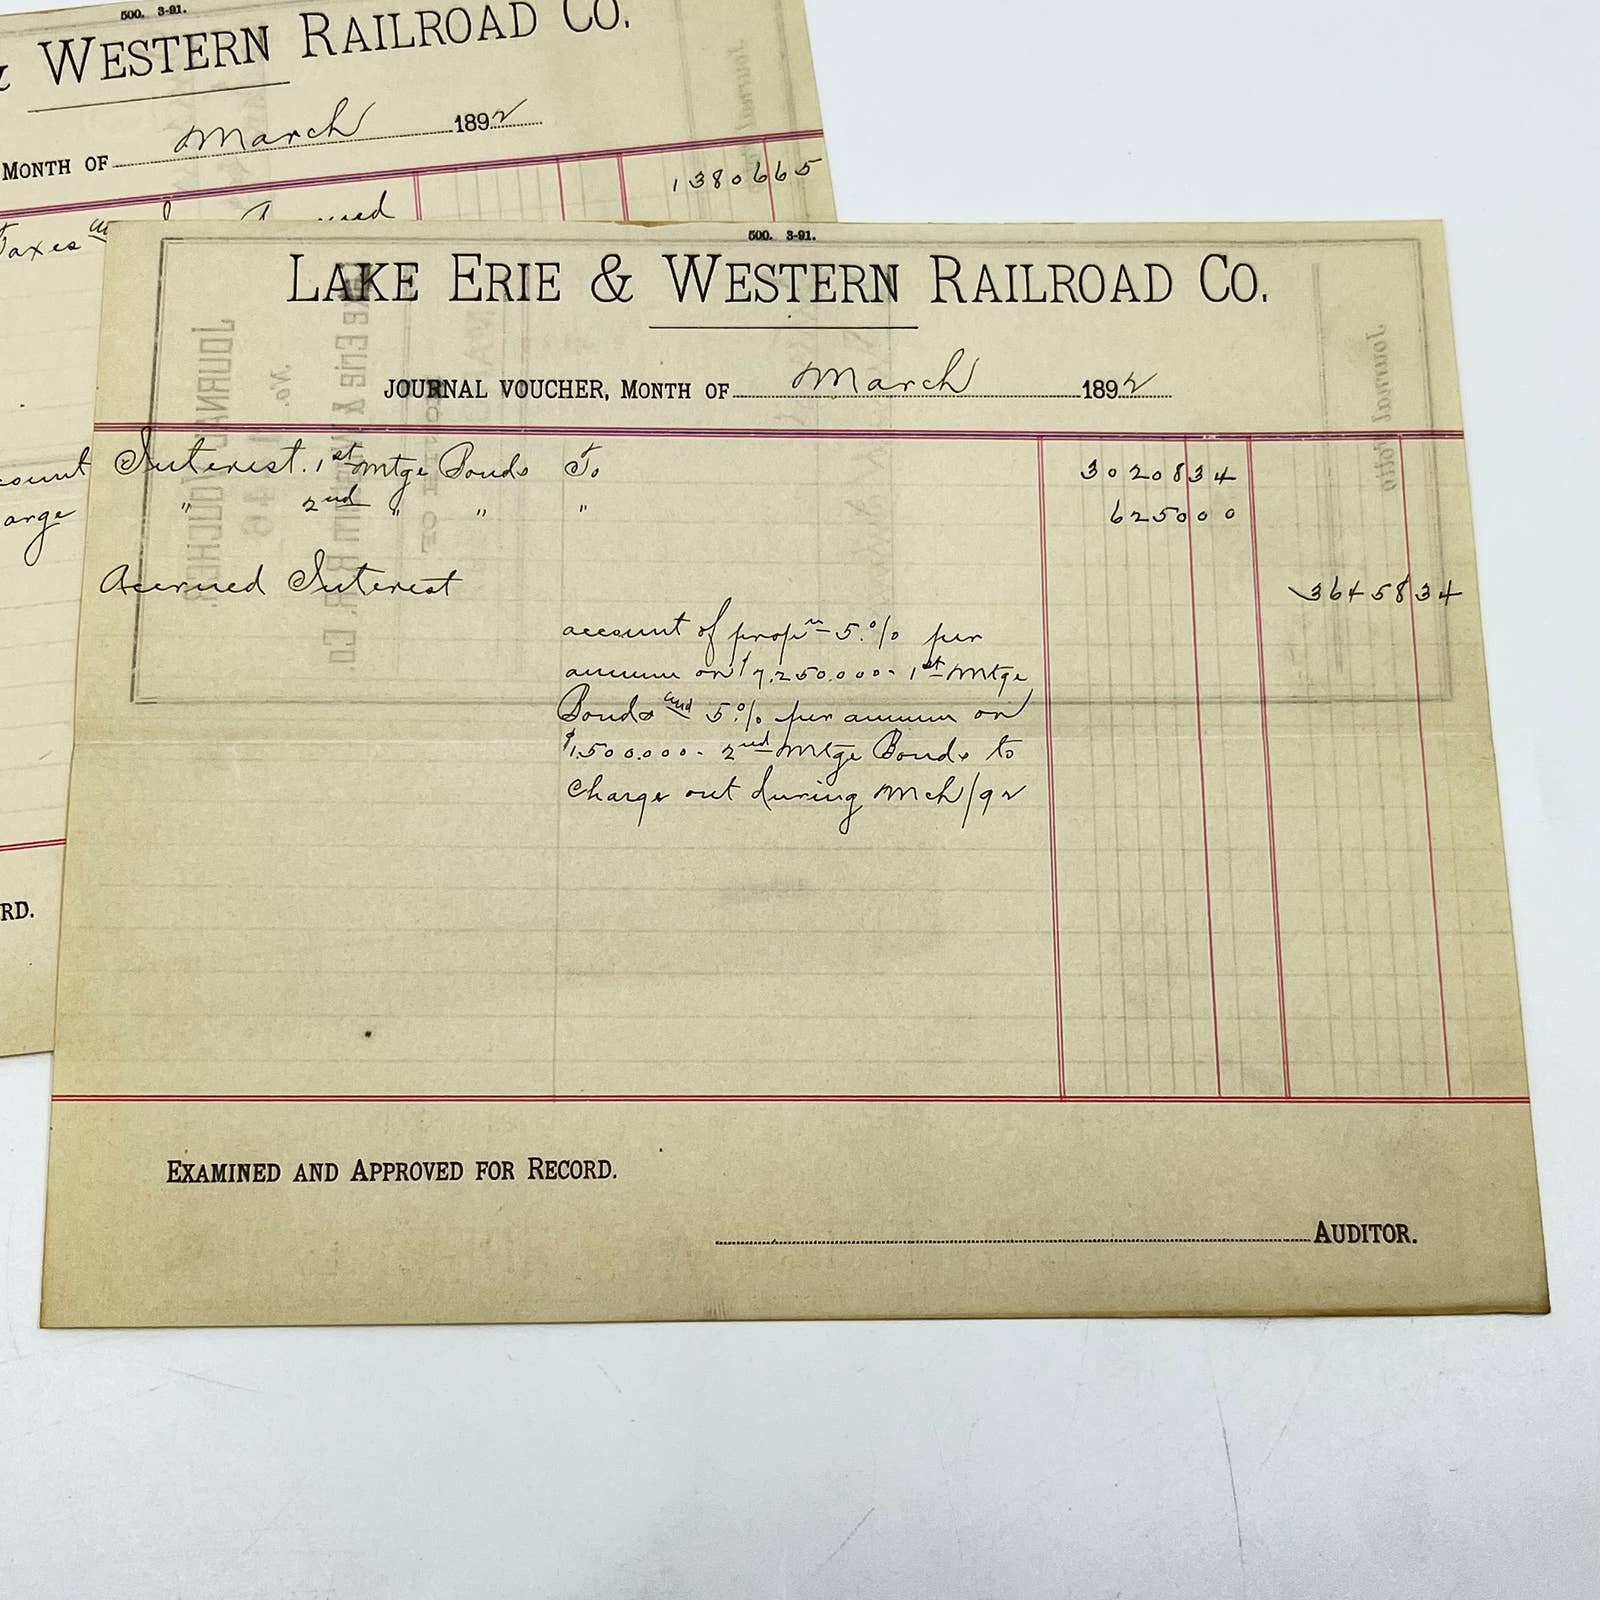 500. 3-91.
& WESTERN RAILROAD CO.
MONTH OF March 1892
1380665
Taxes
500. 3-91.
LAKE ERIE & WESTERN RAILROAD CO.
JOURNAL VOUCHER, MONTH OF March 1892
Interest. 1st Mtge Bonds To 3020834
" 2nd " " " 625000
arge
Accrued Interest 3645834
account of propn 5.% per
annum on $7,250.000- 1st Mtge
Bonds and 5% per annum on
$1.500.000- 2nd Mtge Bonds to
Charge out during Mch/92
RD.
EXAMINED AND APPROVED FOR RECORD.
AUDITOR.